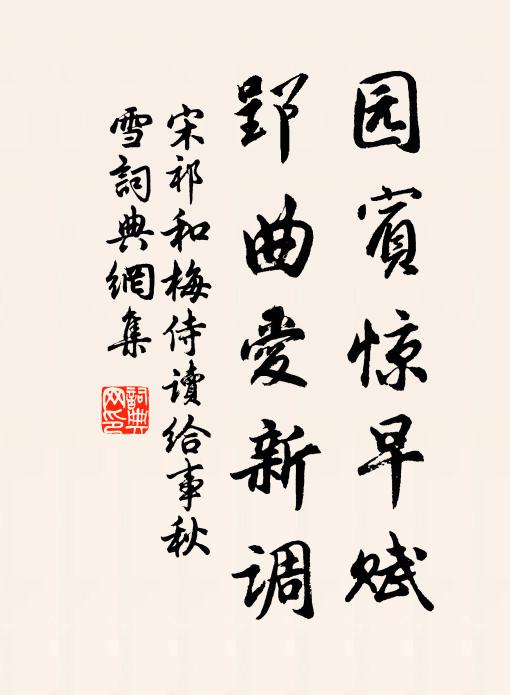 园賓惊早赋
郢曲愛新调
宋祁和梅侍讀给事秋
雪詞典網集
詞典
网印